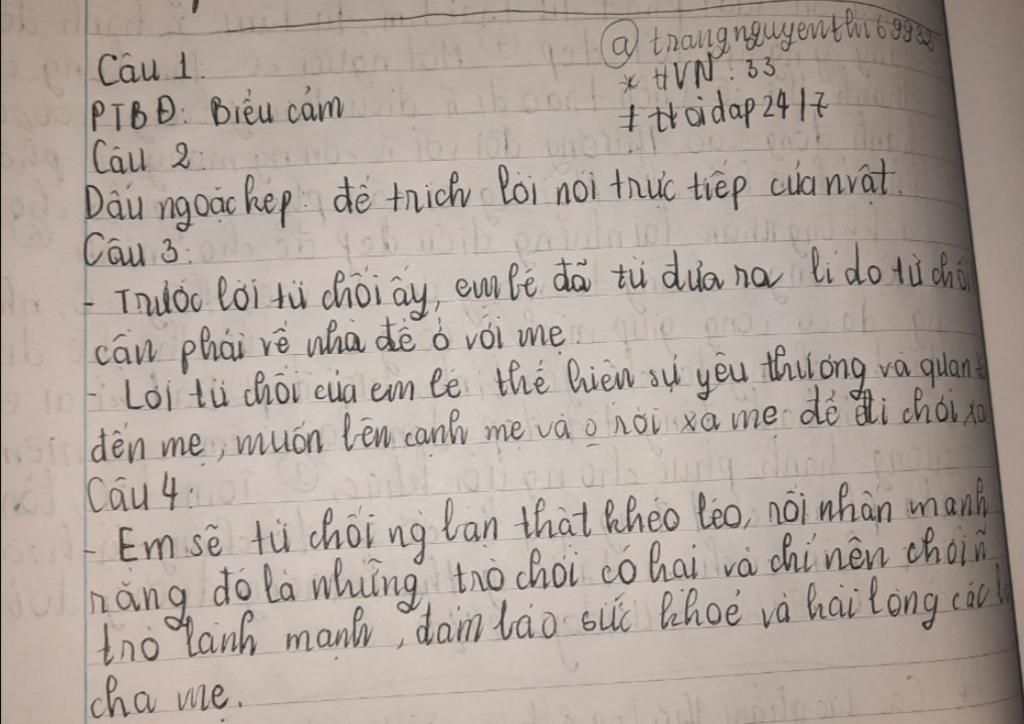 Câu 1:
@ trangnguyenthi6993
* HVN: 33
PTBĐ: Biểu cảm
# Hoidap24/7
Câu 2:
Dấu ngoặc kép: để trích lời nói trực tiếp của nvật.
Câu 3:
- Trước lời từ chối ấy, em bé đã từ đưa ra lí do từ chối
cần phải về nhà để ở với mẹ.
- Lời từ chối của em bé thể hiện sự yêu thương và quan
đến mẹ, muốn bên cạnh mẹ và o rời xa mẹ để đi chơi xa
Câu 4:
- Em sẽ từ chối ng bạn thật khéo léo, rồi nhấn mạnh
rằng đó là những trò chơi có hại và chỉ nên chơi n~
trò lành mạnh, đảm bảo sức khoẻ và hài lòng các
cha mẹ.